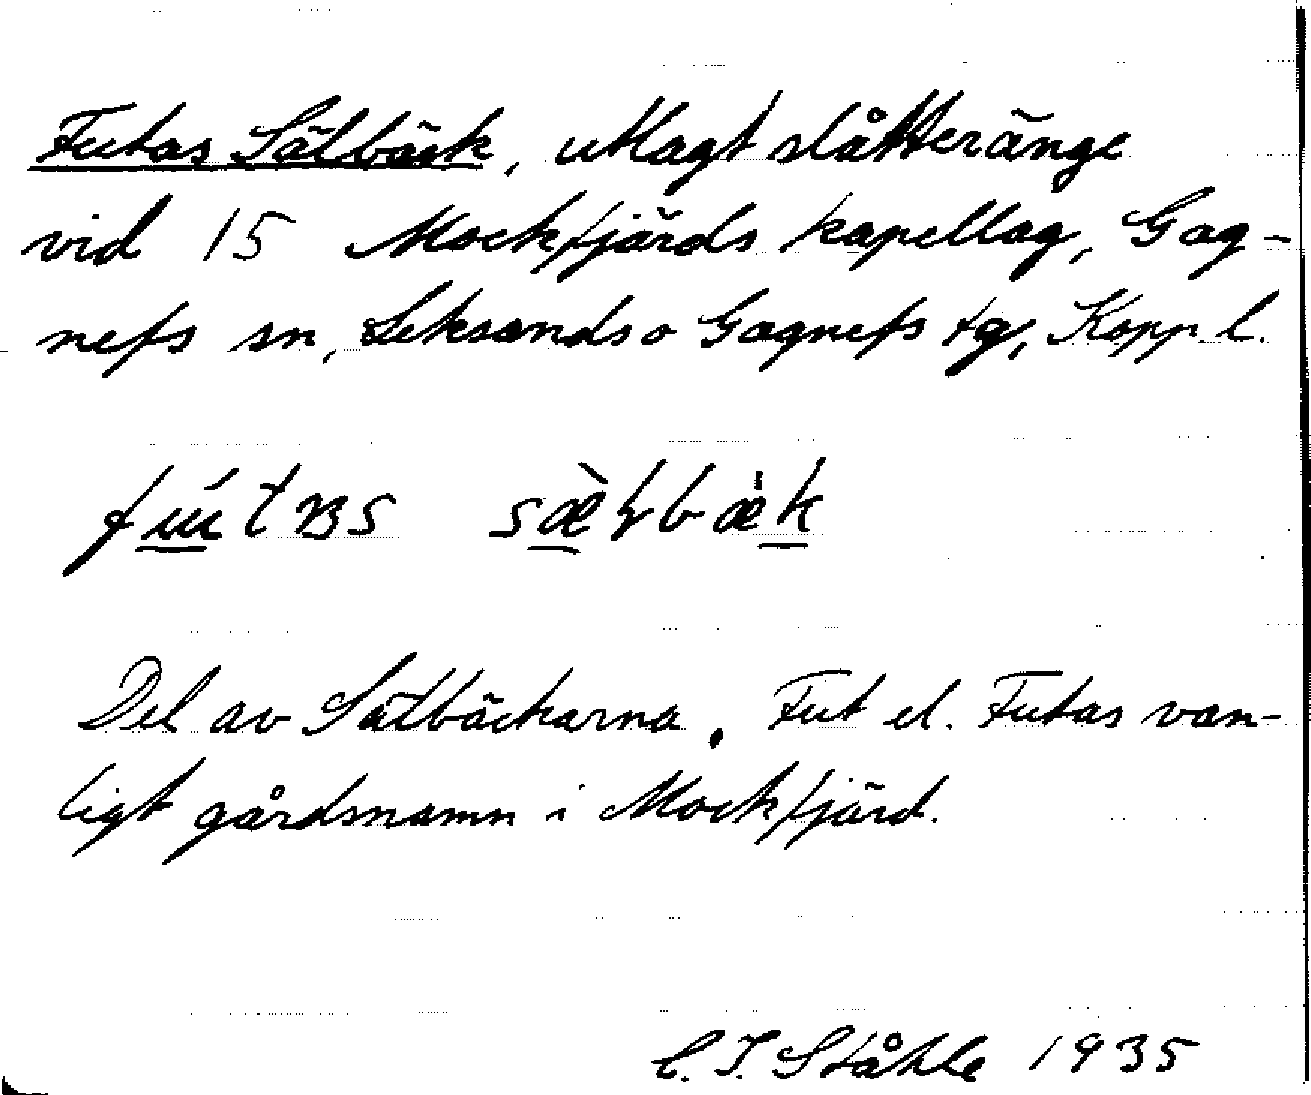 Futas Sätbäck, utlagt slåtteränge
vid 15 Mockfjärds kapellag, Gag-
nefs sn, Leksands o Gagnefs tg, Kopp l.
Del av Sätbäckarna. Fut el. Futas van-
ligt gårdsnamn i Mockfjärd.
C. I. Ståhle 1935